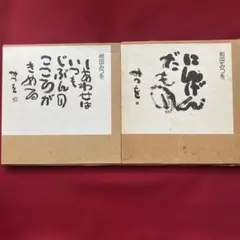 相田みつを
しあわせは
いつも
じぶんの
こころが
きめる
みつを
相田みつを
にんげん
だもの
みつを